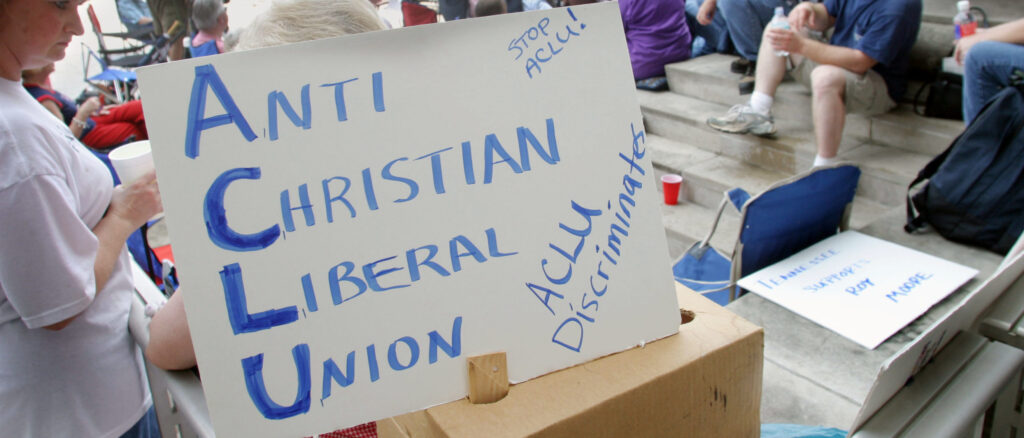 STOP
ACLU!
ANTI
CHRISTIAN
LIBERAL
UNION
ACLU
Discriminates
SUPPORTS
ROY
MOORE